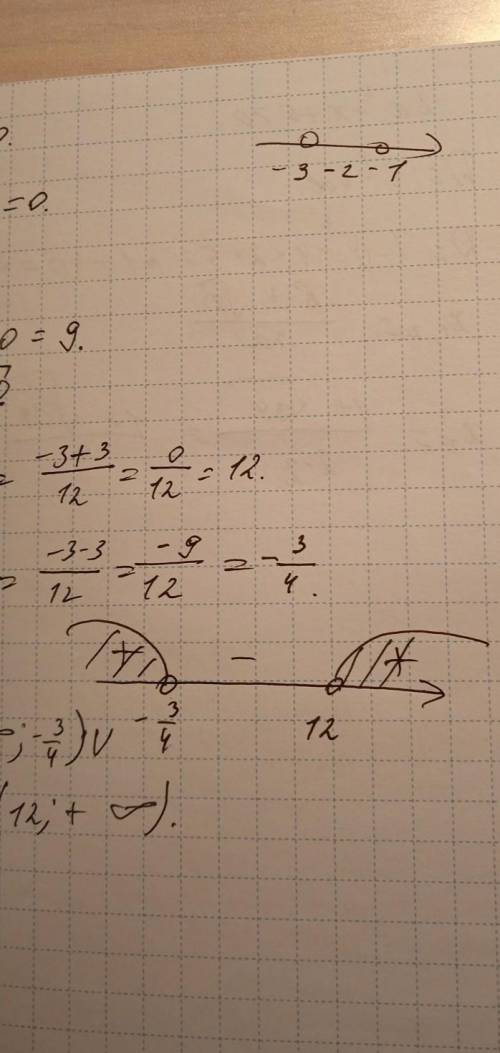 0.
-3 -2 -1
=0.
0 = 9.
= \frac{-3+3}{12} = \frac{0}{12} = 12.
= \frac{-3-3}{12} = \frac{-9}{12} = -\frac{3}{4}.
+ - +
-\frac{3}{4} 12
; -\frac{3}{4}) ∪
12; + ∞).